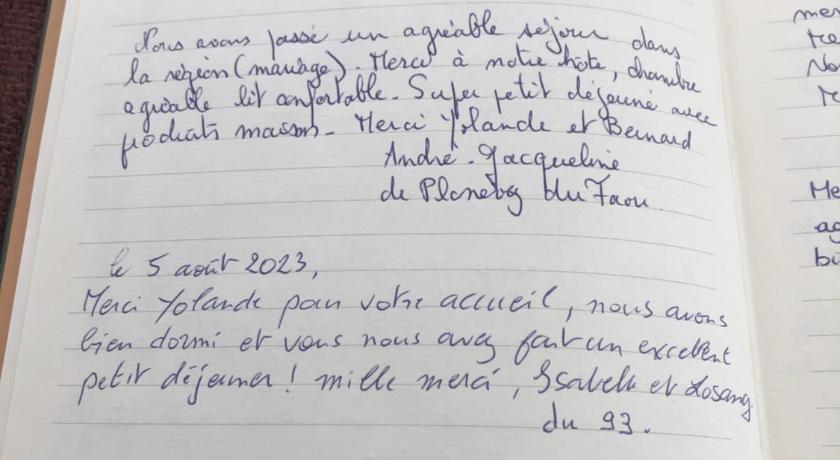 Nous avons passé un agréable séjour dans
la région (mariage). Merci à notre hôte, chambre
agréable lit confortable. Super petit déjeuné avec
produits maison. Merci Yolande et Bernard
André. Jacqueline
de du Faou
le 5 août 2023,
Merci Yolande pour votre accueil, nous avons
bien dormi et vous nous avez fait un excellent
petit déjeuner! mille merci, Isabelle et Losang
du 93.
Me